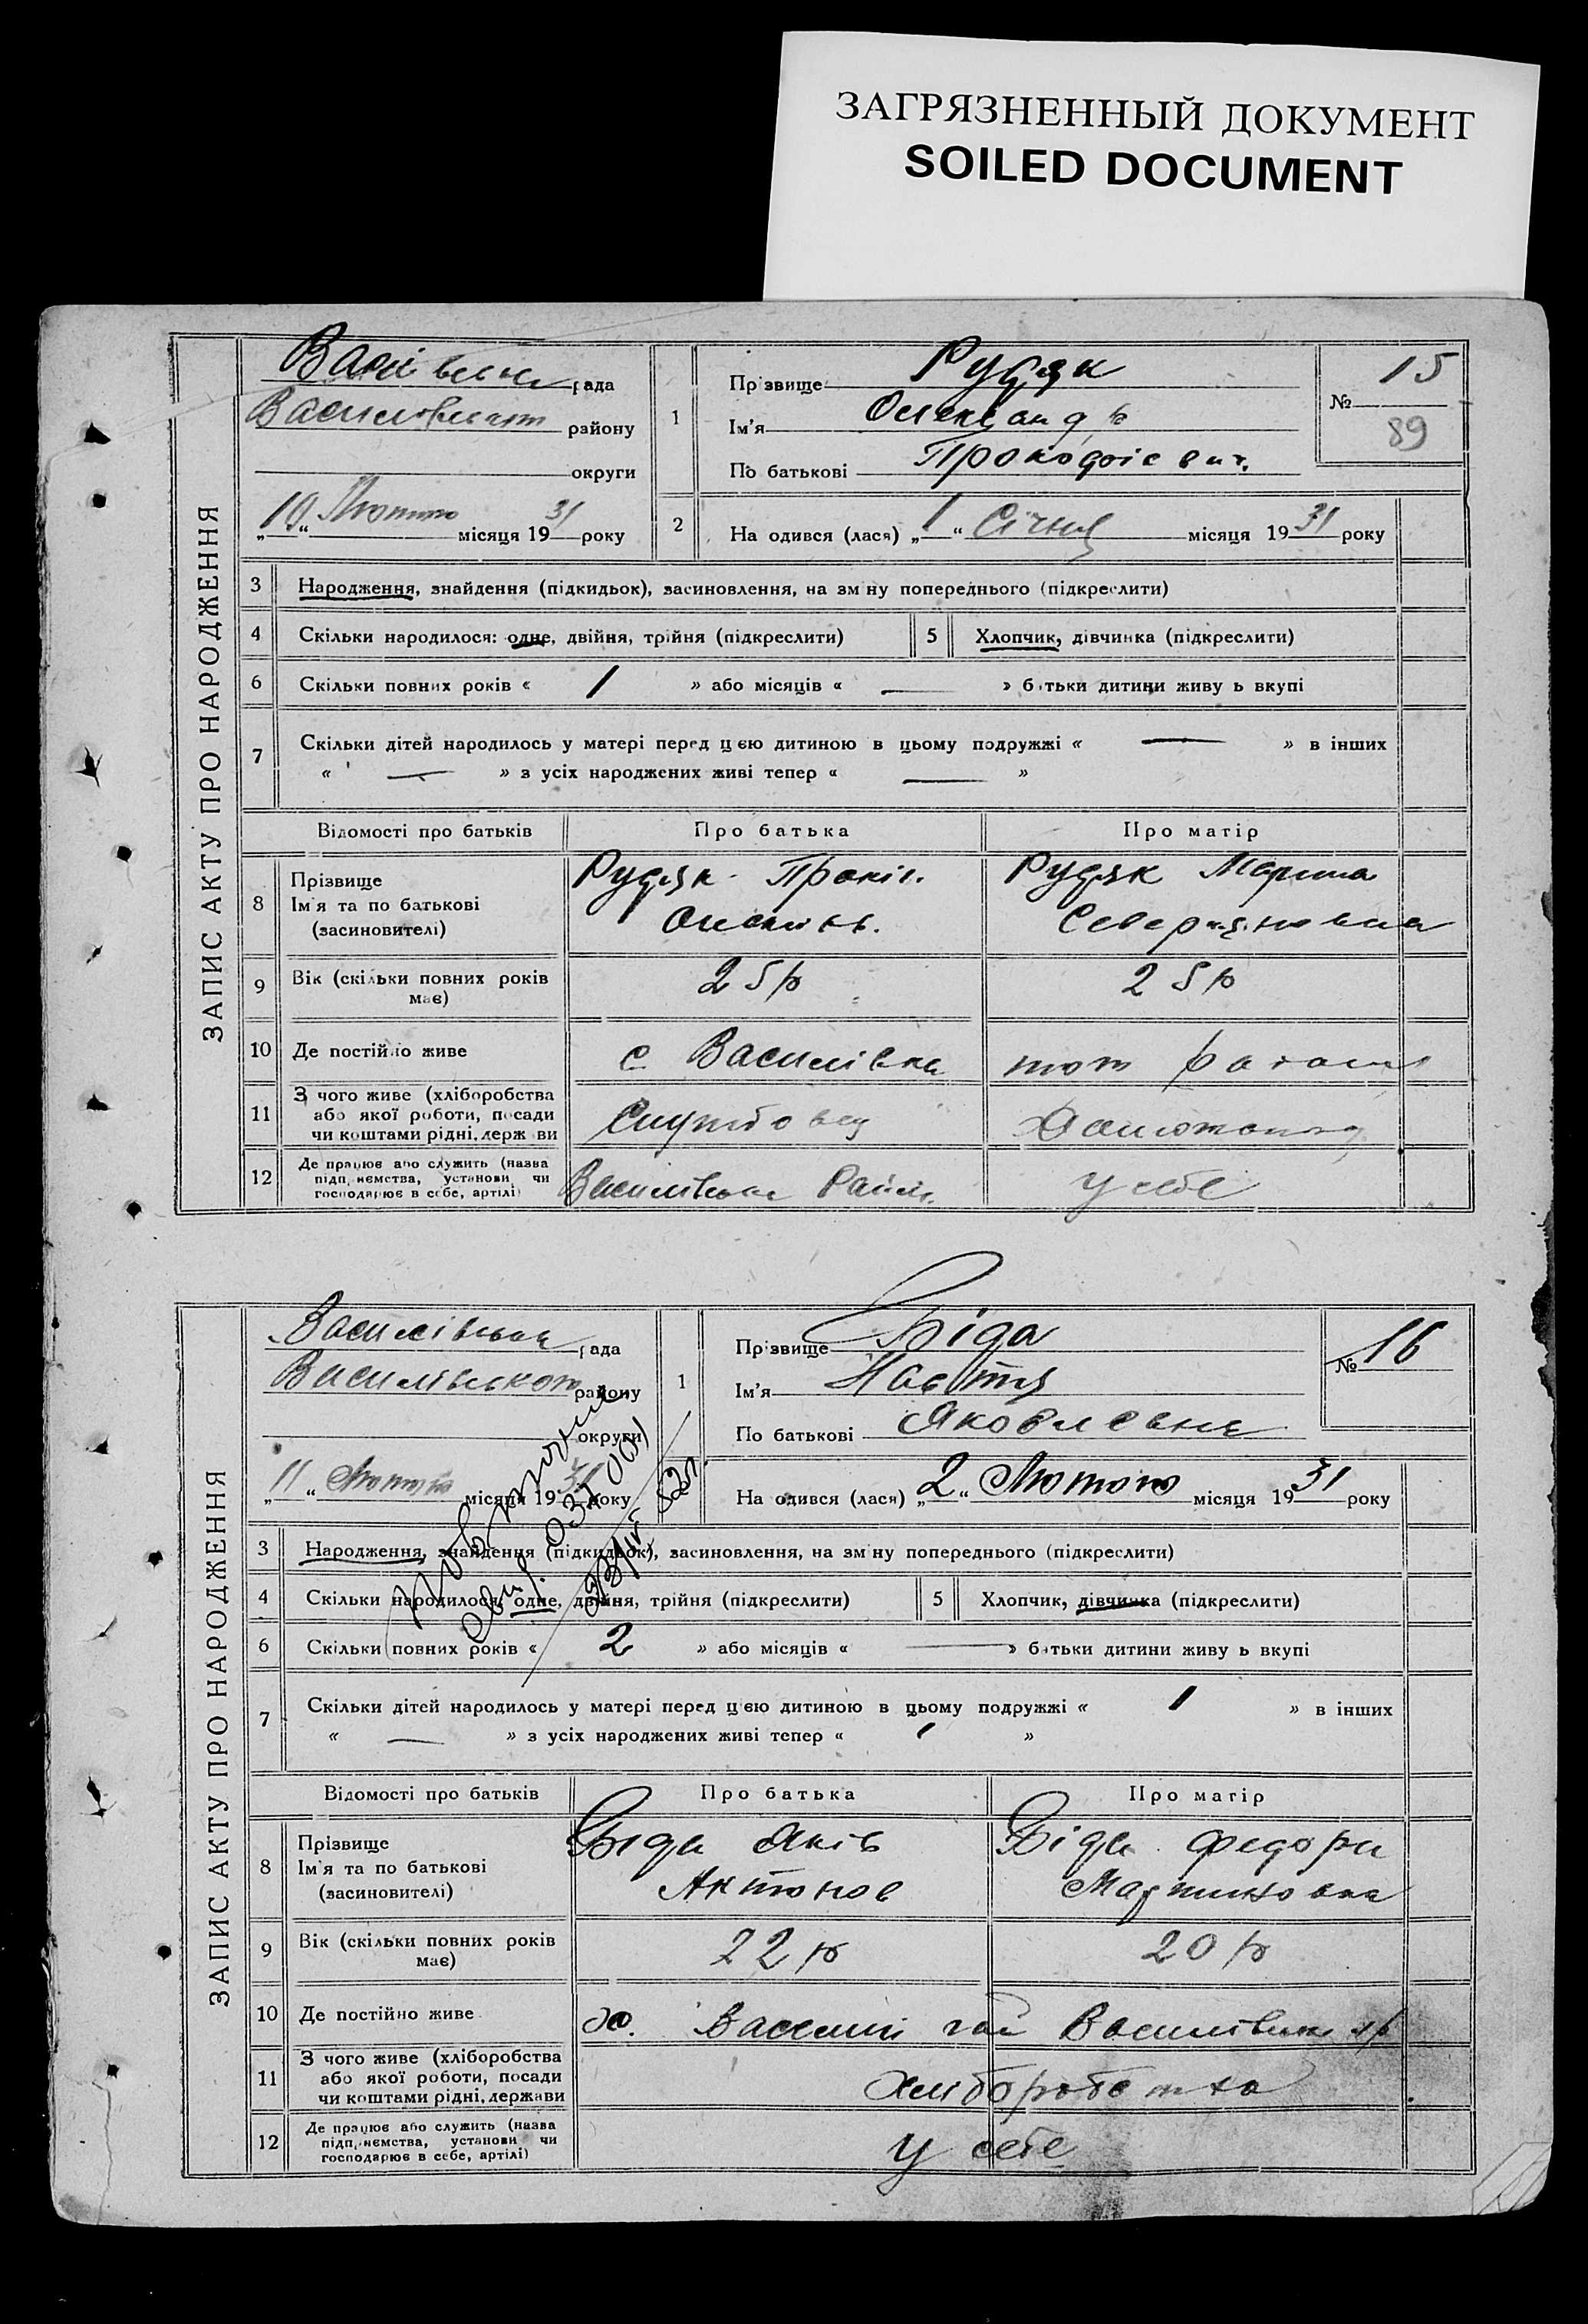 ЗАГРЯЗНЕННЫЙ ДОКУМЕНТ
SOILED DOCUMENT
ЗАПИС АКТУ ПРО НАРОДЖЕННЯ
рада
району
округи
„10“ Лютого місяця 1931 року
1
Прізвище Рудяк
Ім'я Олександр
По батькові Прокофіевич.
№ 15
89
2
Народився (лася) „1“ Січня місяця 1931 року
3 Народження, знайдення (підкидьок), засиновлення, на зміну попереднього (підкреслити)
4 Скільки народилося: одне, двійня, трійня (підкреслити)
5 Хлопчик, дівчинка (підкреслити)
6 Скільки повних років « 1 » або місяців « — » батьки дитини живуть вкупі
7 Скільки дітей народилось у матері перед цією дитиною в цьому подружжі « — » в інших
« — » з усіх народжених живі тепер « — »
Відомості про батьків Про батька Про матір
8 Прізвище
Ім'я та по батькові
(засиновителі)
Рудяк Прокіп.
Рудяк Марина
Северияновна
9 Вік (скільки повних років
має)
25 р
25 р
10 Де постійно живе
с Василівка
11 З чого живе (хліборобства
або якої роботи, посади
чи коштами рідні, держави
Службовец
12 Де працює або служить (назва
підприємства, установи чи
господарює в себе, артілі)
Василівська
у себе
ЗАПИС АКТУ ПРО НАРОДЖЕННЯ
Василівська рада
Василівського району
округи
„11“ Лютого місяця 1931 року
1
Прізвище Біда
Ім'я Настя
По батькові Яковлевна
№ 16
Народився (лася) „2“ Лютого місяця 1931 року
3 Народження, знайдення (підкидьок), засиновлення, на зміну попереднього (підкреслити)
4 Скільки народилося: одне, двійня, трійня (підкреслити)
5 Хлопчик, дівчинка (підкреслити)
6 Скільки повних років « 2 » або місяців « — » батьки дитини живуть вкупі
7 Скільки дітей народилось у матері перед цією дитиною в цьому подружжі « 1 » в інших
« — » з усіх народжених живі тепер « 1 »
Відомості про батьків Про батька Про матір
8 Прізвище
Ім'я та по батькові
(засиновителі)
Біда Яків
Антонов
Біда Федора
Мартиновна
9 Вік (скільки повних років
має)
22 р
20 р
10 Де постійно живе
11 З чого живе (хліборобства
або якої роботи, посади
чи коштами рідні, держави
хліборобства
12 Де працює або служить (назва
підприємства, установи чи
господарює в себе, артілі)
у себе